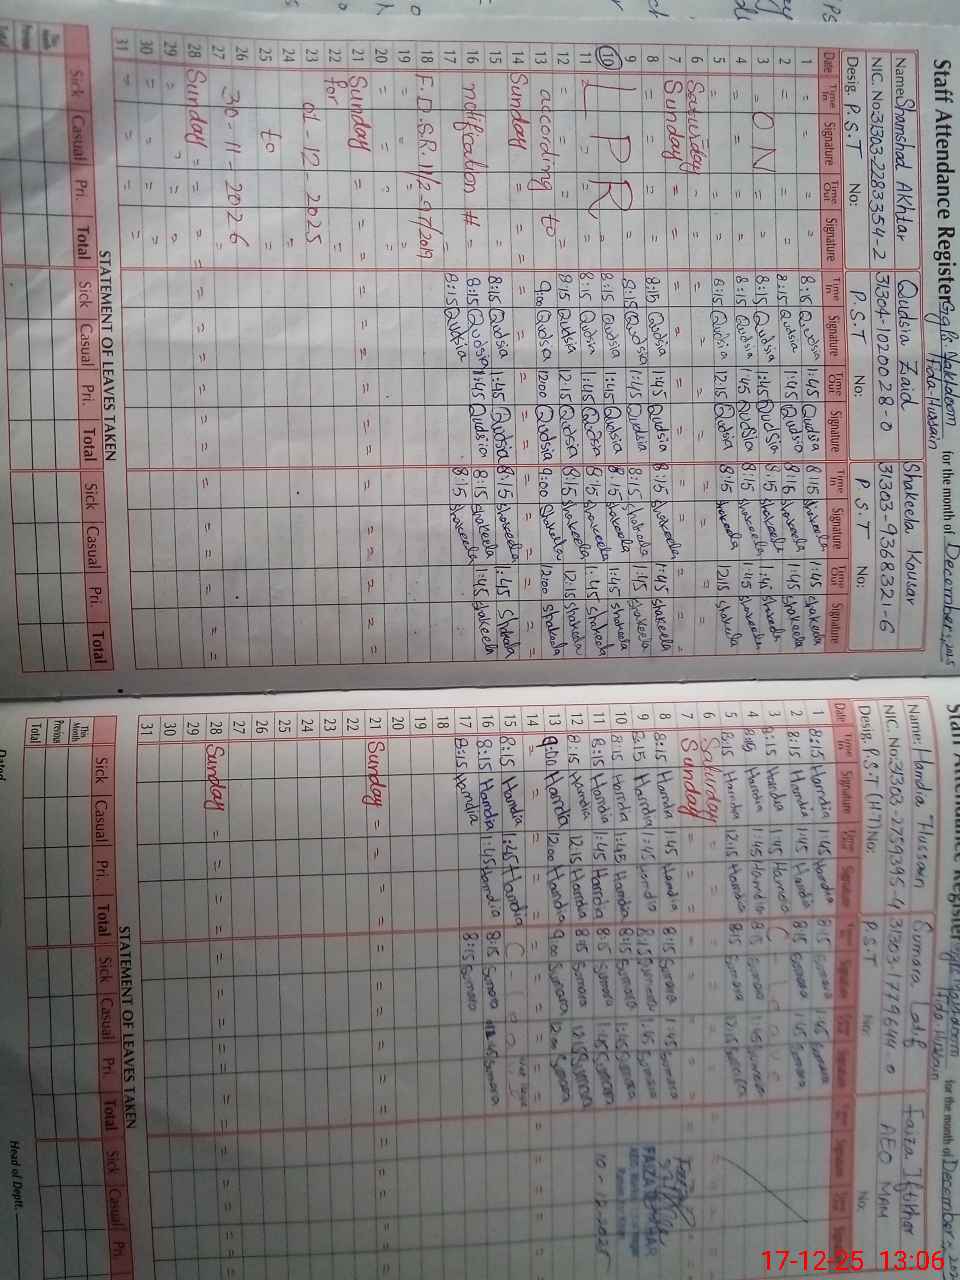 Staff Attendance Register
for the month of December, 2025
Name: Shamshad Akhtar
Qudsia Zaid
Shakeela Kousar
NIC. No. 31303-2283354-2
31304-1020028-0
31303-9368321-6
Desig. P.S.T No:
P.S.T No:
P.S.T No:
Date Time In Signature Time Out Signature Time In Signature Time Out Signature Time In Signature Time Out Signature
1 = = = = 8:15 Qudsia 1:45 Qudsia 8:15 Shakeela 1:45 Shakeela
2 = = = = 8:15 Qudsia 1:45 Qudsia 8:16 Shakeela 1:45 Shakeela
3 = ON = 8:15 Qudsia 1:45 Qudsia 8:15 Shakeela 1:45 Shakeela
4 = = = = 8:15 Qudsia 1:45 Qudsia 8:15 Shakeela 1:45 Shakeela
5 = = = = 8:15 Qudsia 12:15 Qudsia 8:15 Shakeela 12:15 Shakeela
6 Saturday = = = = = =
7 Sunday = = = = = =
8 = = = = 8:15 Qudsia 1:45 Qudsia 8:15 Shakeela 1:45 Shakeela
9 = = = = 8:15 Qudsia 1:45 Qudsia 8:15 Shakeela 1:45 Shakeela
10 LPR 8:15 Qudsia 1:45 Qudsia 8:15 Shakeela 1:45 Shakeela
11 = = = 8:15 Qudsia 1:45 Qudsia 8:15 Shakeela 1:45 Shakeela
12 = = = = 8:15 Qudsia 12:15 Qudsia 8:15 Shakeela 12:15 Shakeela
13 according to 9:00 Qudsia 12:00 Qudsia 9:00 Shakeela 12:00 Shakeela
14 Sunday = = = = = =
15 = 8:15 Qudsia 1:45 Qudsia 8:15 Shakeela 1:45 Shakeela
16 notification # = 8:15 Qudsia 1:45 Qudsia 8:15 Shakeela 1:45 Shakeela
17 = 8:15 Qudsia 8:15 Shakeela
18 F.D.S.R.
19 = =
20 = = = =
21 Sunday = = = = = =
22 for =
23 01-12-2025
24 =
25 to =
26 30-11-2026
27 =
28 Sunday = = = = = =
29 = = = =
30 = = = =
31 = = = =
STATEMENT OF LEAVES TAKEN
Sick Casual Pri. Total Sick Casual Pri. Total Sick Casual Pri. Total
This Month
Previous
Total
Staff Attendance Register
for the month of December, 2025
Name: Hamdia Hussain
Sumara Latif
Faiza Iftikhar
NIC. No. 31303-2759395-4
31303-1779644-0
AEO MAM
Desig. P.S.T (H.T) No:
P.S.T No:
No:
Date Time In Signature
1 8:15 Hamdia 1:45 Hamdia 8:15 Sumara 1:45 Sumara
2 8:15 Hamdia 1:45 Hamdia 8:15 Sumara 1:45 Sumara
3 8:15 Hamdia 1:45 Hamdia C-Leave
4 8:15 Hamdia 1:45 Hamdia 8:15 Sumara 1:45 Sumara
5 8:15 Hamdia 12:15 Hamdia 8:15 Sumara 12:15 Sumara
6 Saturday = = = =
7 Sunday = = = =
8 8:15 Hamdia 1:45 Hamdia 8:15 Sumara 1:45 Sumara
9 8:15 Hamdia 1:45 Hamdia 8:15 Sumara 1:45 Sumara FAIZA
10 8:15 Hamdia 1:45 Hamdia 8:15 Sumara 1:45 Sumara
11 8:15 Hamdia 1:45 Hamdia 8:15 Sumara 1:45 Sumara 10-12-2025
12 8:15 Hamdia 12:15 Hamdia 8:15 Sumara 12:15 Sumara
13 9:00 Hamdia 12:00 Hamdia 9:00 Sumara 12:00 Sumara
14 = = = = =
15 8:15 Hamdia 1:45 Hamdia
16 8:15 Hamdia 1:45 Hamdia 8:15 Sumara 1:45 Sumara
17 8:15 Hamdia 8:15 Sumara
18
19
20
21 Sunday = = = =
22
23
24
25
26
27
28 Sunday = = = =
29
30
31
STATEMENT OF LEAVES TAKEN
Sick Casual Pri. Total Sick Casual Pri. Total Sick Casual Pri.
This Month
Previous
Total
Dated
Head of Deptt.
17-12-25 13:06